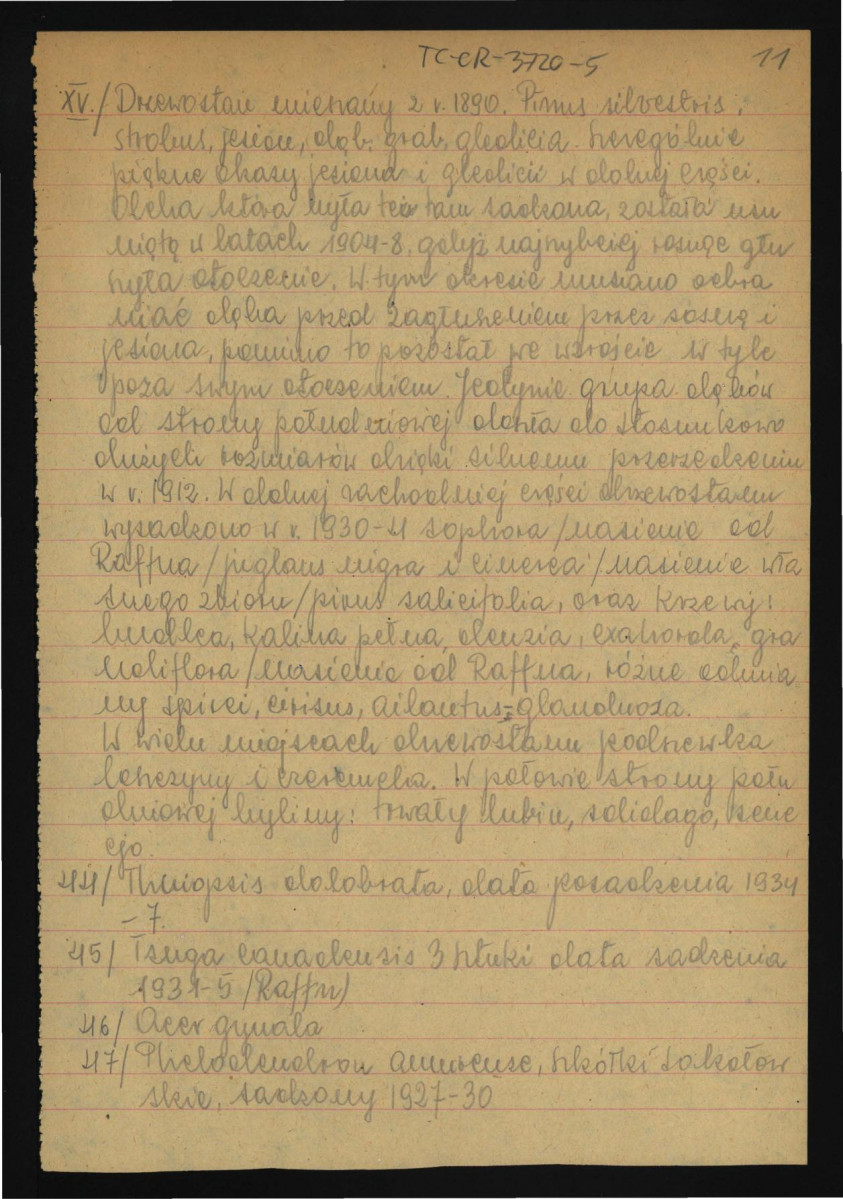 TC-CR-3720-5 11
XV./ Drzewostan mieszany z r. 1890. Pinus silvestris,
strobus, jesion, dąb, grab, gledicia. Szczególnie
piękne okazy jesiona i gledicii w dolnej części.
Olcha która była też tam sadzona, została usu
niętą w latach 1904-8, gdyż najszybciej rosnąc głu
szyła otoczenie. W tym okresie musiano ochra
niać dęba przed zagłuszeniem przez sosnę i
jesiona, pomimo to pozostał we wzroście w tyle
poza swym otoczeniem. Jedynie grupa dębów
od strony południowej doszła do stosunkowo
dużych rozmiarów dzięki silnemu przerzedzeniu
w r. 1912. W dolnej zachodniej części drzewostanu
wysadzono w r. 1930-41 sophora /nasienie od
Raffna/ juglans nigra i cinerea /nasienie wła
snego zbioru/ pirus salicifolia, oraz krzewy:
budlea, kalina pełna, deuzia, exahorda gra
ndiflora /nasienie od Raffna, różne odmia
ny spirei, citisus, ailantus=glandulosa.
W wielu miejscach drzewostanu podszewka
leszczyny i czeremcha. W połowie strony połu
dniowej byliny: trwały łubin, solidago, sene
cjo.
44/ Thuiopsis dolobrata, data posadzenia 1934
-7.
45/ Tsuga canadensis 3 sztuki data sadzenia
1931-5 /Raffn/
46/ Acer gynala
47/ Phelodendron amurense, szkółki sokołow
skie, sadzony 1927-30